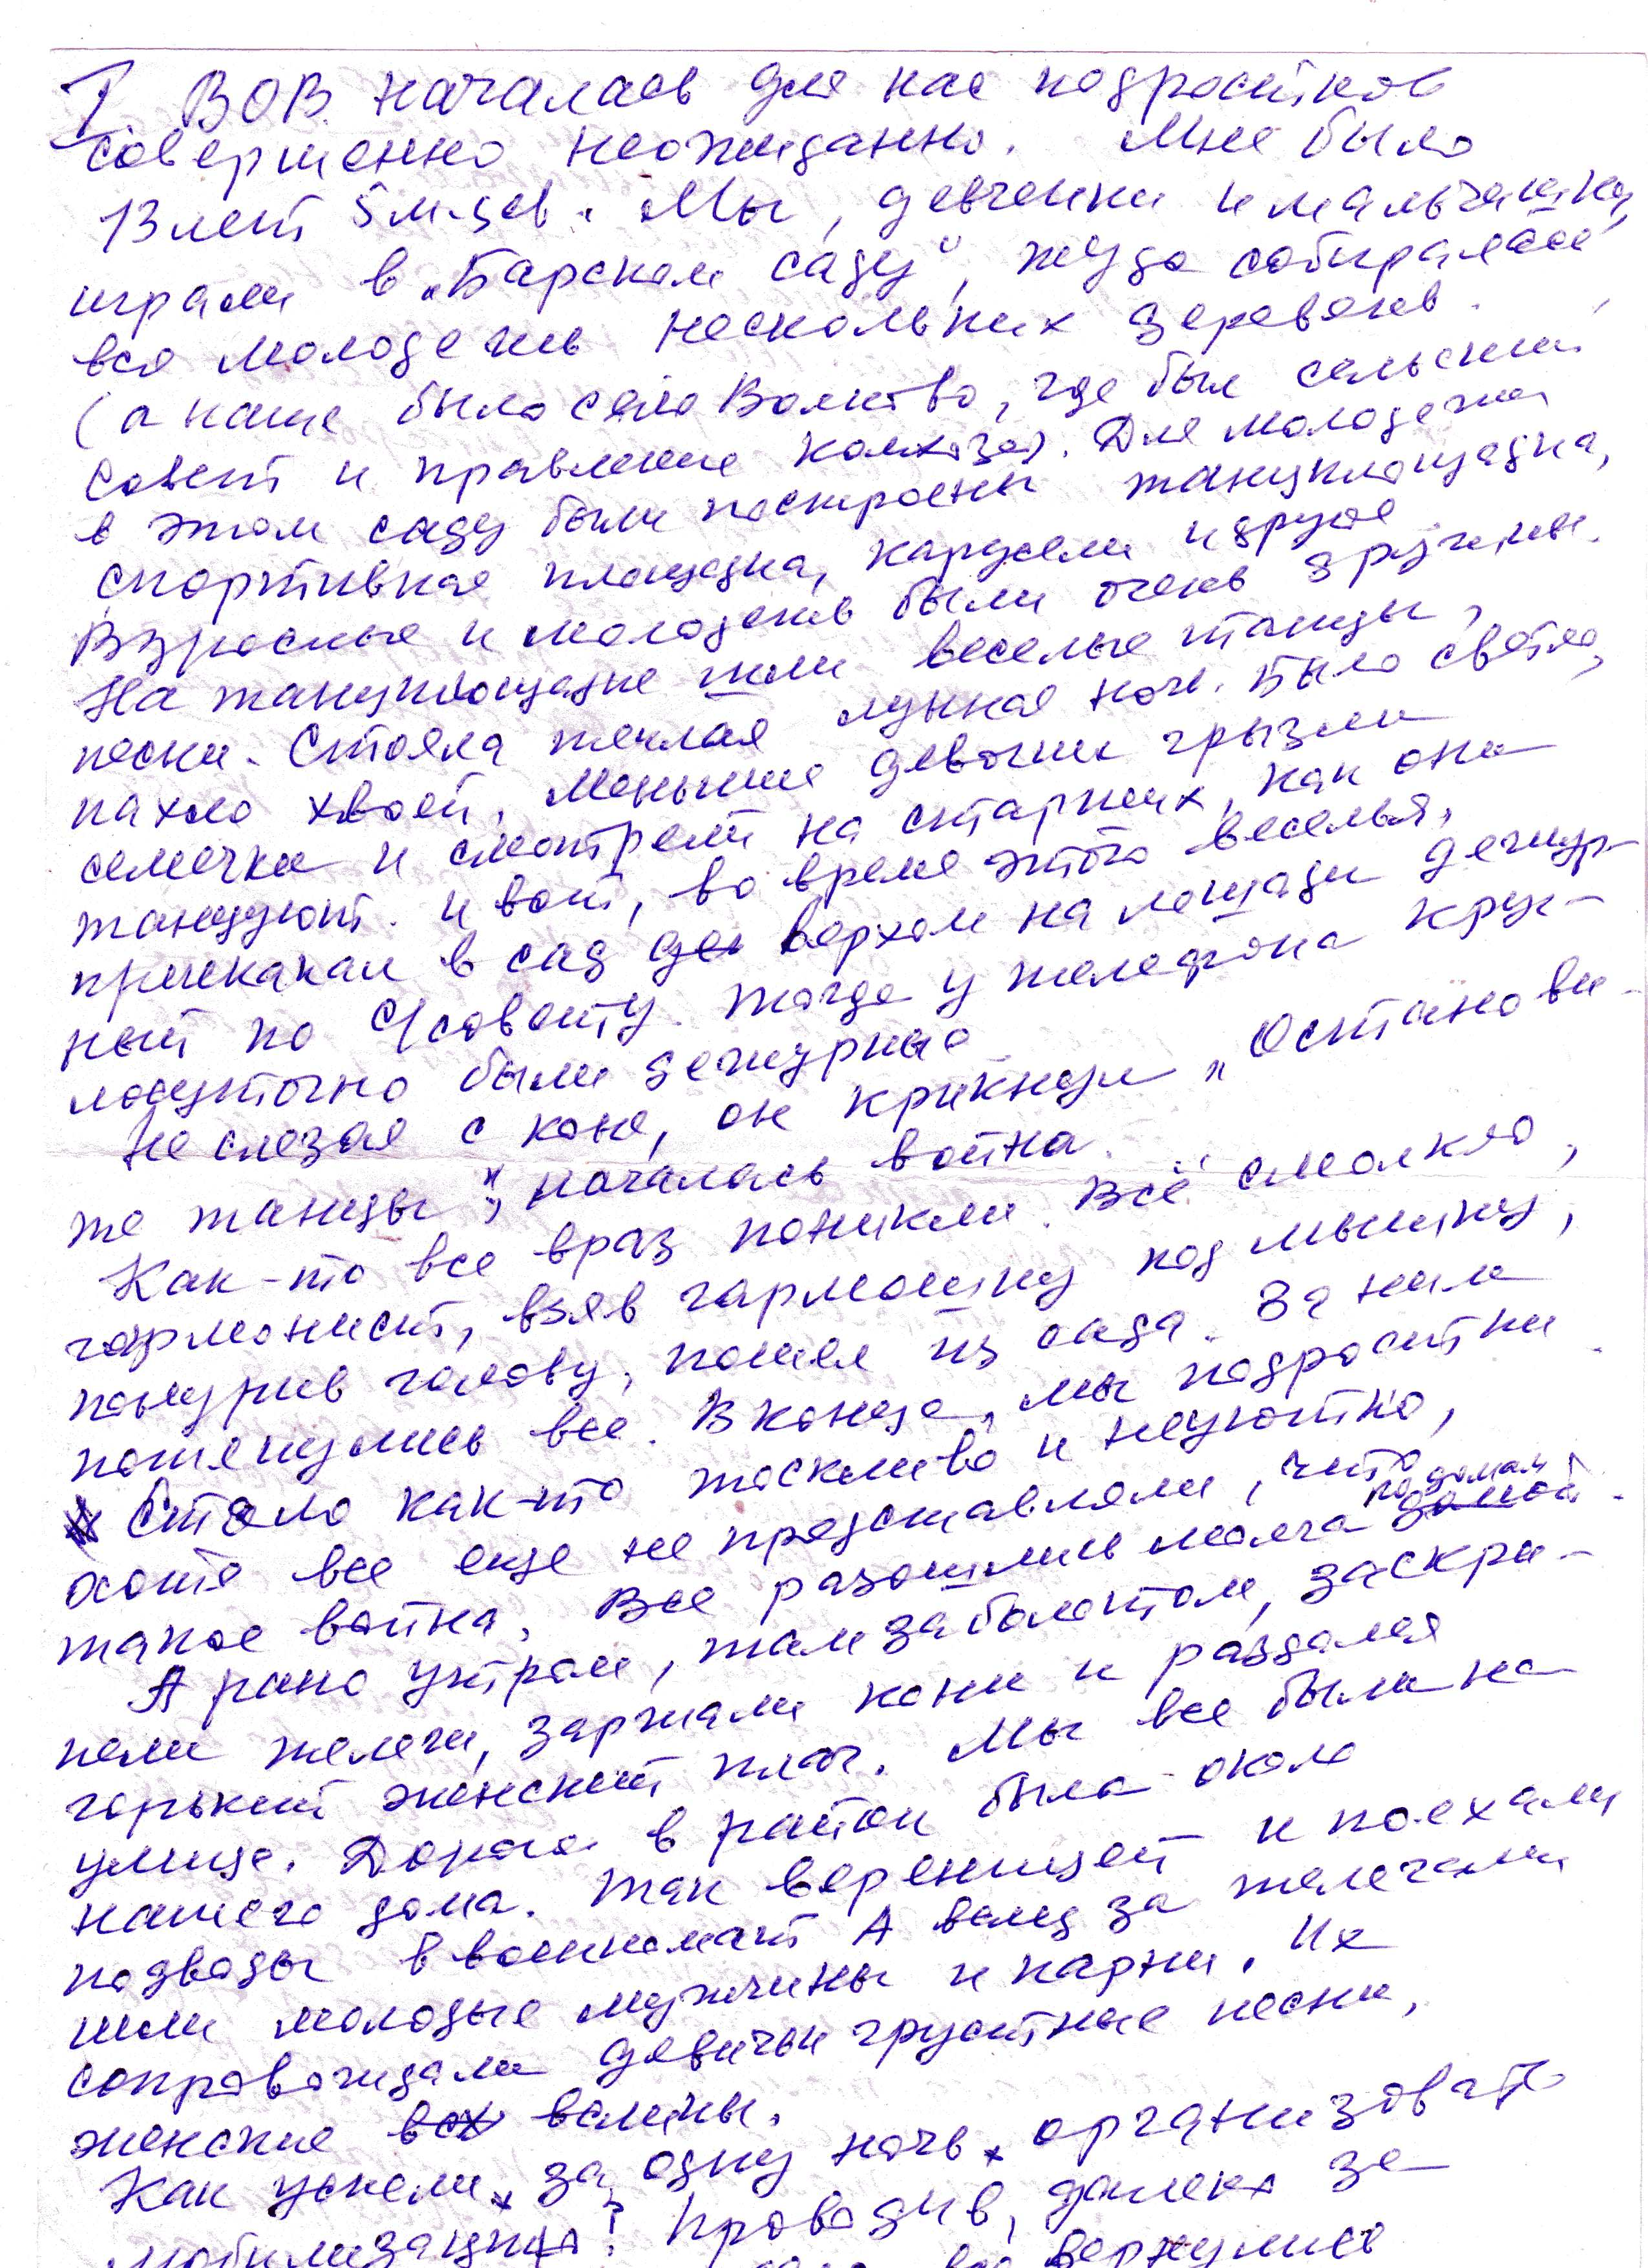 I. ВОВ началась для нас подростков
совершенно неожиданно. Мне было
13 лет 5 м-цев. Мы, девченки и мальчишки,
играли в „Барском саду", куда собиралась
вся молодежь нескольких деревень.
(а наше было село Волство, где был сельский
совет и правление колхоза). Для молодежи
в этом саду были построены танцплощадка,
спортивная площадка, карусели и другое
Взрослые и молодежь были очень дружны.
На танцплощадке шли веселые танцы,
песни. Стояла теплая лунная ночь. Было светло,
пахло хвоей. Меньшие девочки грызли
семечки и смотрели на старших, как они
танцуют. И вот, во время этого веселья,
прискакал в сад верхом на лошади дежур-
ный по С/совету. Тогда у телефона круг-
лосуточно были дежурные
Не слезая с коня, он крикнул „Останови-
те танцы", началась война.
Как-то все враз поникли. Всё смолкло,
гармонист, взяв гармошку под мышку,
понурив голову, пошел из сада. За ним
потянулись все. В конце, мы подростки.
Стало как-то тоскливо и неуютно,
хотя все еще не представляли, что
такое война. Все разошлись молча по домам домой.
А рано утром, там за болотом, заскри-
пели телеги, заржали кони и раздался
горький женский плач. Мы все были на
улице. Дорога в район была около
нашего дома. Так вереницей и поехали
подводы в военкомат А вслед за телегами
шли молодые мужчины и парни. Их
сопровождали девичьи грустные песни,
женские вопли.
Как успели за одну ночь организовать
мобилизацию? Проводив, далеко за
все вернулись